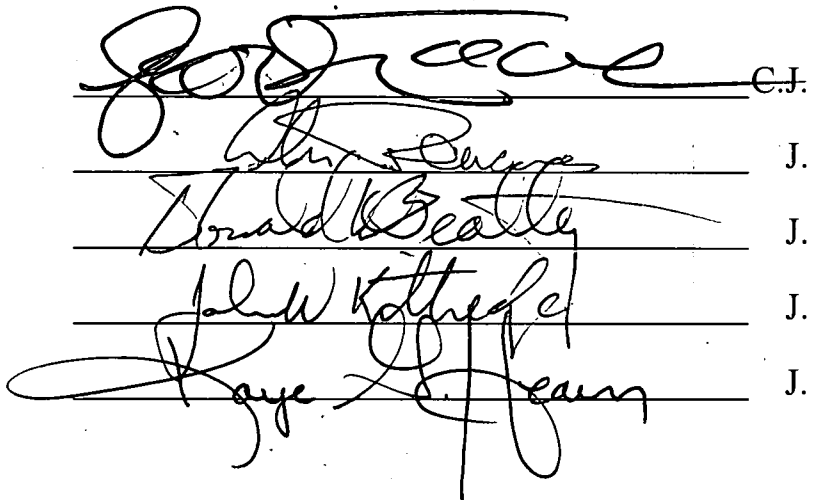 C.J.
J.
Donald W Beatty J.
John W Kittredge J.
Kaye G. Hearn J.